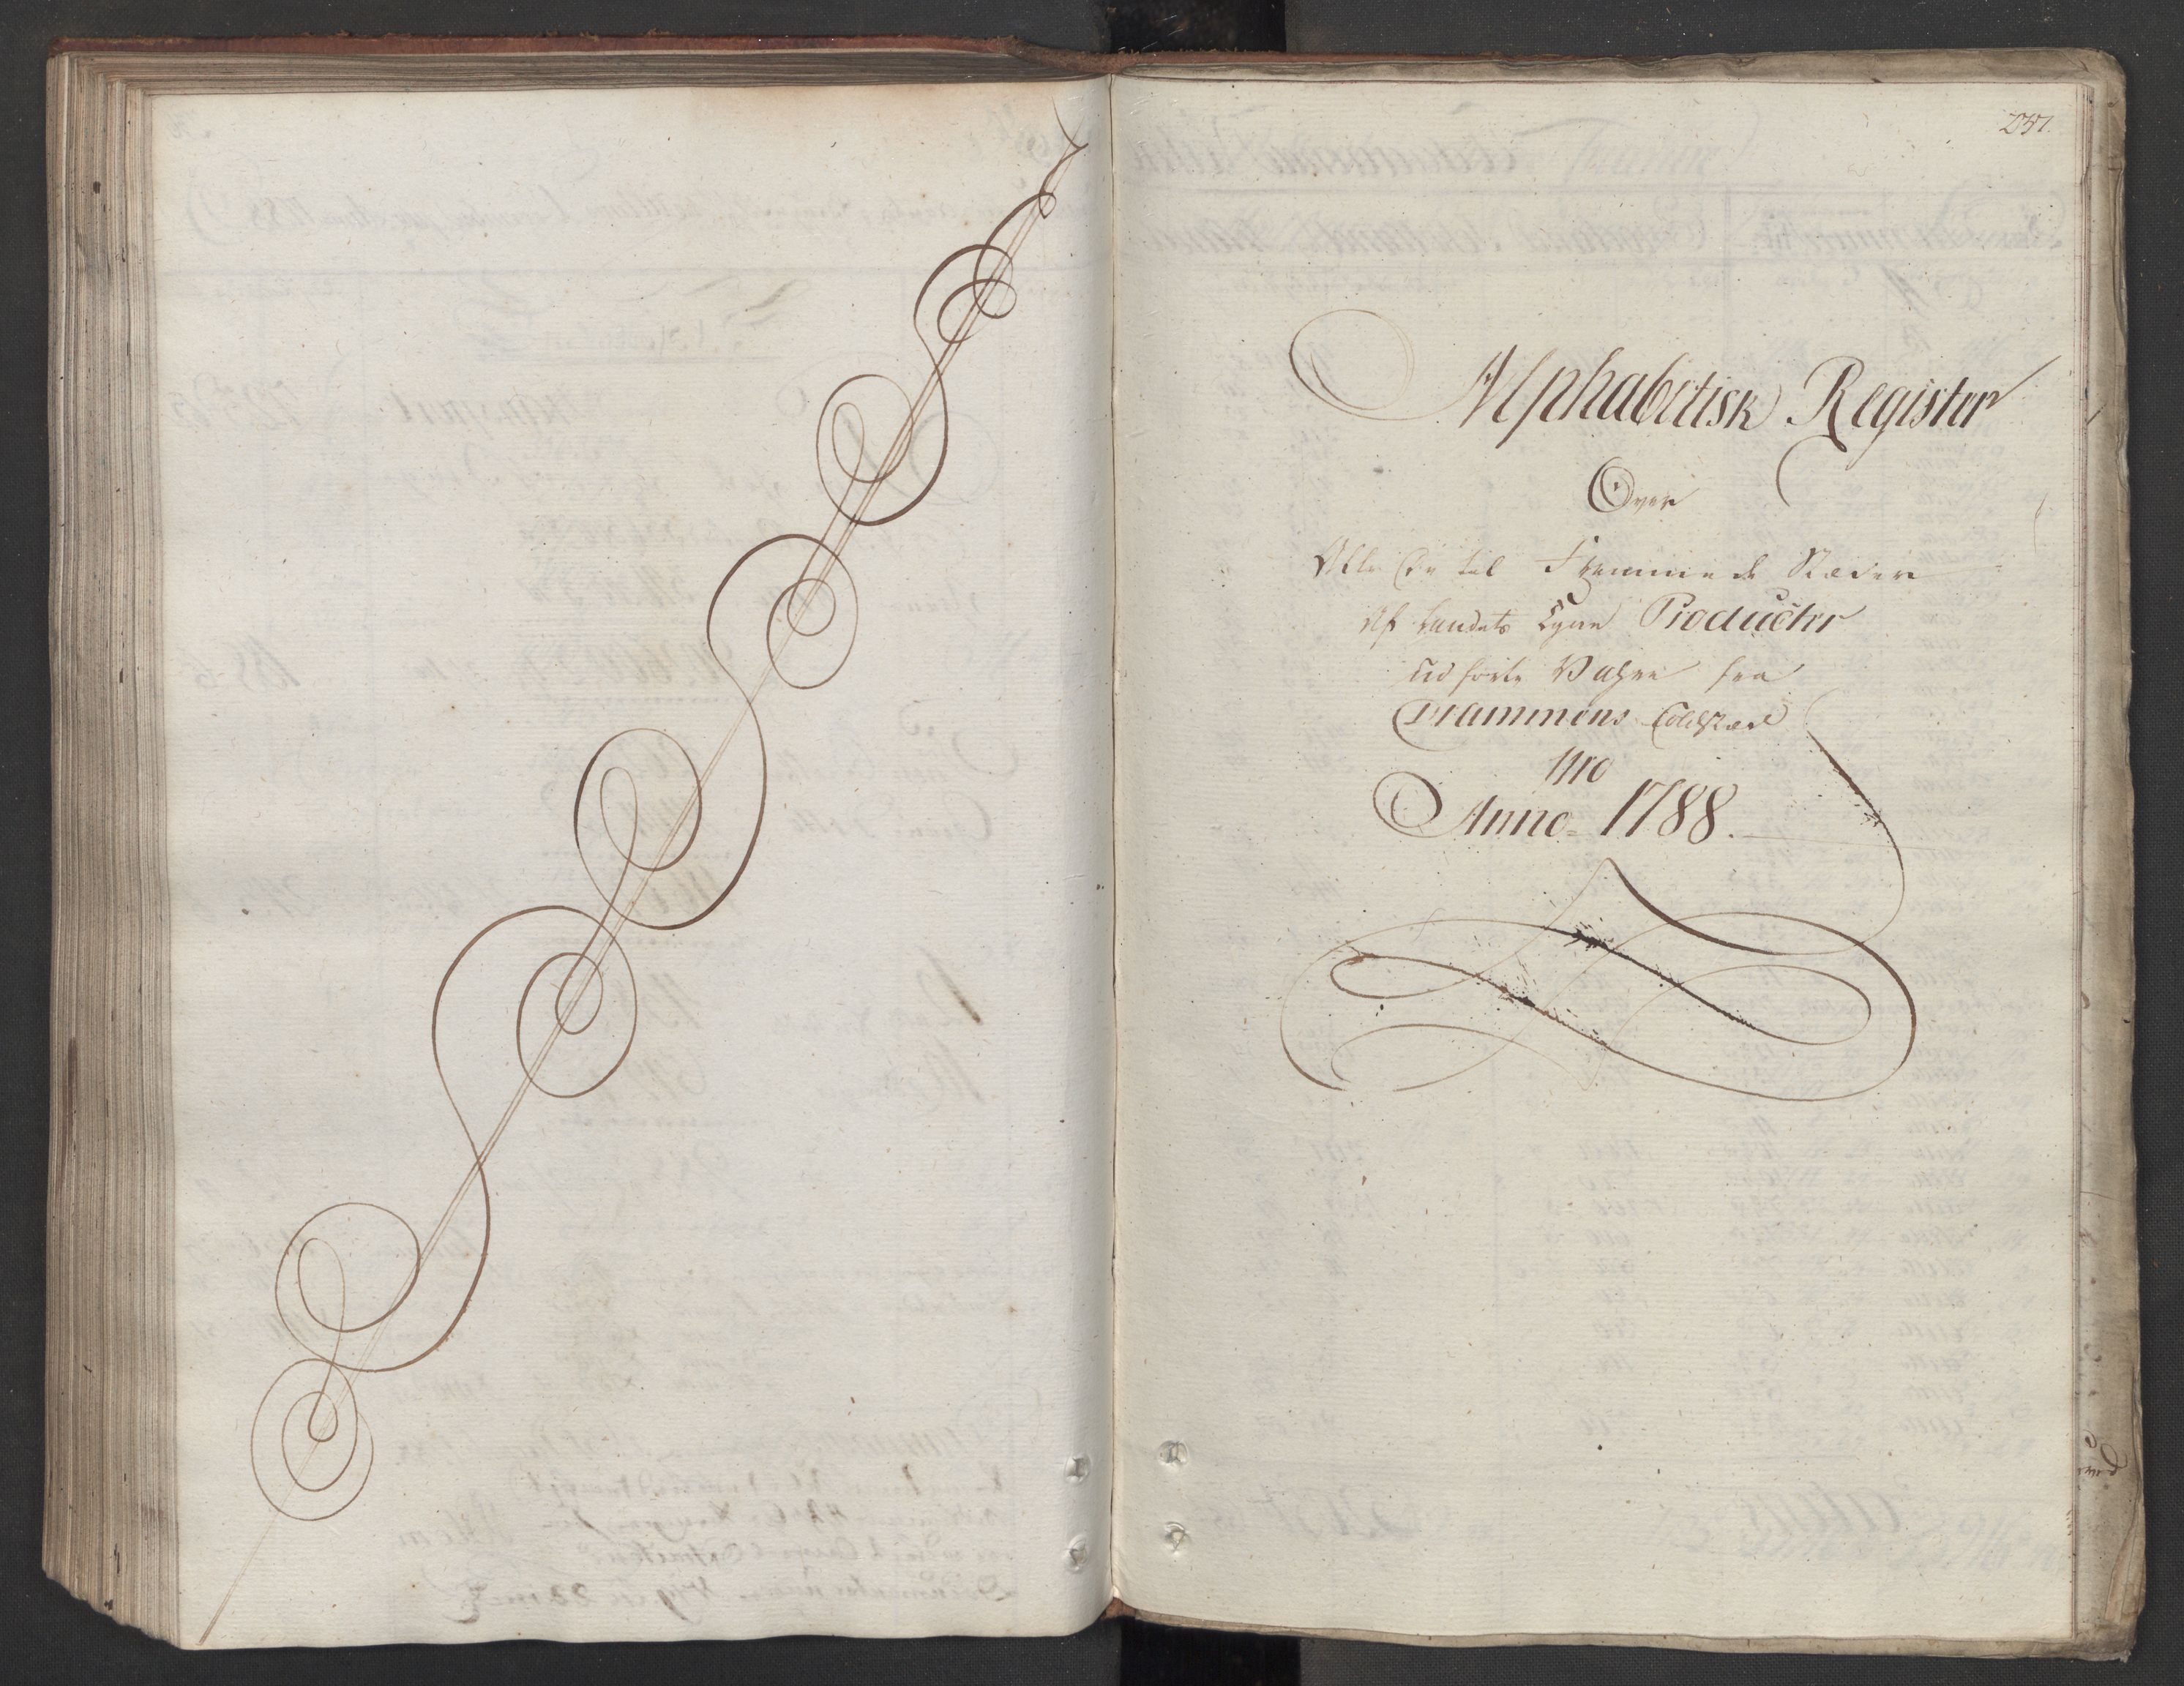 237.
Alphabetisk Register
Over
Alle De til Fremmede Stæder
Af Landets Egne Producter
udførte Vahre fra
Drammens Toldsted
pro
Anno 1788.